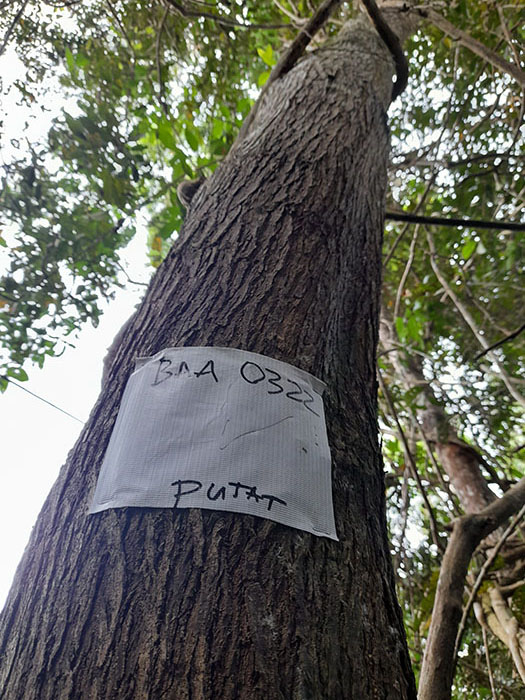 BAA 0322
PUTAT